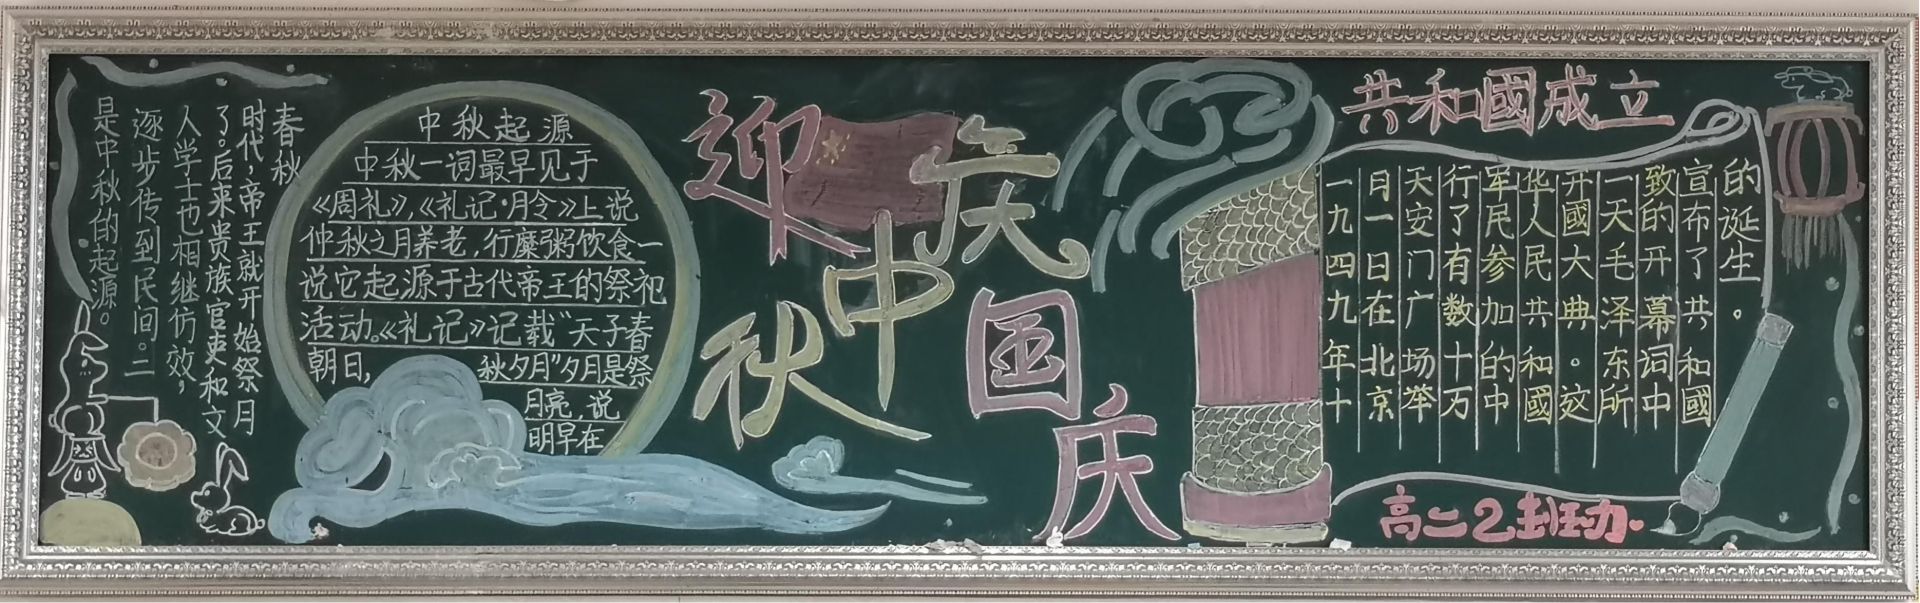 中秋起源
中秋一词最早见于
《周礼》,《礼记·月令》上说
仲秋之月养老,行糜粥饮食一
说它起源于古代帝王的祭祀
活动。《礼记》记载"天子春
朝日,秋夕月"夕月是祭
月亮,说
明早在
春秋
时代,帝王就开始祭月
了。后来贵族官吏和文
人学士也相继仿效,
逐步传到民间。二
是中秋的起源。
迎中秋
庆国庆
共和國成立
一九四九年十
月一日在北京
天安门广场举
行了有数十万
军民参加的中
华人民共和國
开國大典。这
一天毛泽东所
致的开幕词中
宣布了共和國
的诞生。
高二2班办.